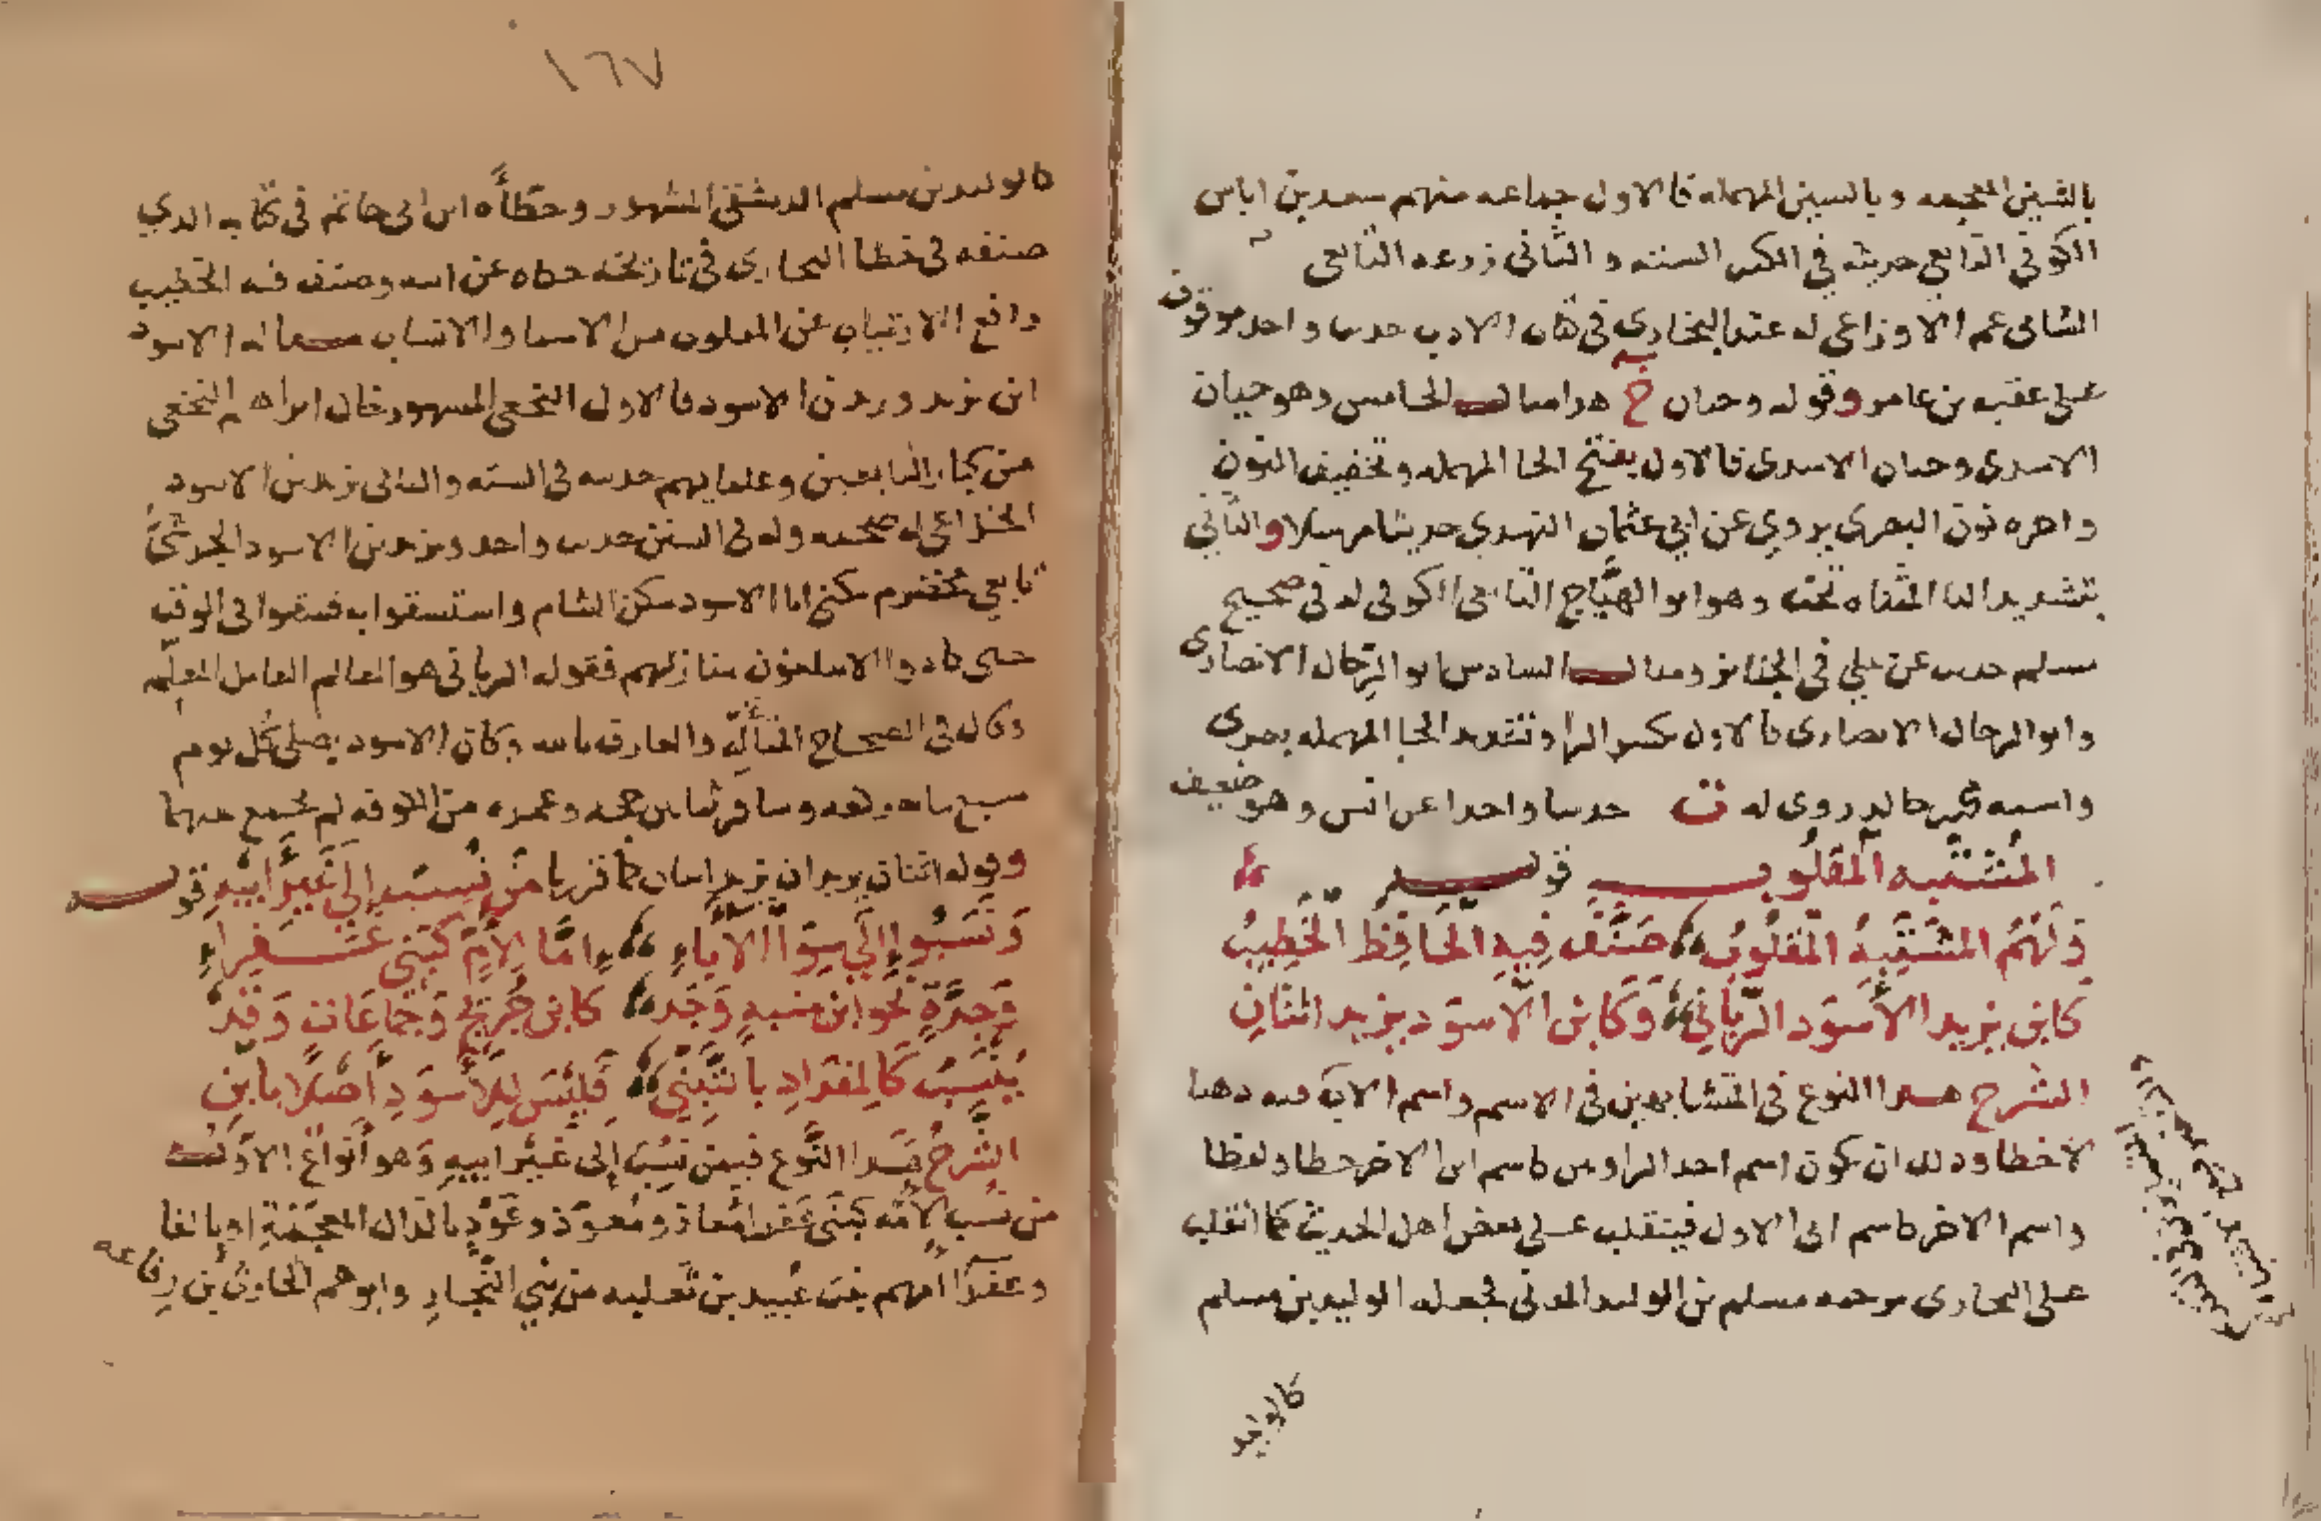 بالشين المعجمه وبالسين المهمله فالاول جماعه منهم سعد بن اياس
الكوفي التابعي حديثه في الكتب الستة والثاني زرعه التابعي
الشامي عم الاوزاعي له عند البخاري في كتاب الادب حديثا واحد موقوف
على عقبه بن عامر وقوله وحنان هذا مثال الخامس وهو حيان
الاسدي وحنان الاسدي فالاول بفتح الحا المهمله وتخفيف النون
واخره نون البصري يروي عن ابي عثمان النهدي حديثا مرسلا والثاني
بتشديد اليا المثناه تحت وهو ابو الهياج التابعي الكوفي له في صحيح
مسلم حديث عن علي في الجنايز ومثال السادس ابو الرحال الانصاري
وابو الرجال الانصاري فالاول بكسر الرا وتشديد الحا المهمله بصري
واسمه خالد روى له ت حديثا واحدا عن انس وهو ضعيف
المُشْتَبِه المقلوب قوله
وَلَهُمُ المشْتَبِهُ المَقْلُوبُ صَنَّفَ فِيهِ الحَافِظُ الخَطِيبُ
كابن يزيد الاَسْوَد الرَّبَّاني وَكَابن الاَسْوَد يزيد اثنَانِ
الشرح هذا النوع في المتشابهين في الاسم واسم الاب
لا خطا وذلك ان يكون اسم احد الراويين كاسم اب الاخر خطا ولفظا
واسم الاخر كاسم ابي الاول فينقلب على بعض اهل الحديث كما انقلب
على البخاري ترجمه مسلم بن الوليد المدني فجعله الوليد بن مسلم
كالوليد
١٦٧
كالوليد بن مسلم الدمشقي المشهور وخطأه ابن ابي حاتم في كتابه الذي
صنفه في خطا البخاري في تاريخه حكاه عن ابيه وصنف فيه الخطيب
رافع الارتياب عن المقلوب من الاسما والانساب مثاله الاسود
ابن يزيد ويزيد بن الاسود فالاول النخعي المشهور خال ابراهيم النخعي
من كبار التابعين وعلمايهم حديثه في الستة والثاني يزيد بن الاسود
الخزاعي له صحبه وله في السنن حديث واحد ويزيد بن الاسود الجرشي
تابعي مخضرم يكنى ابا الاسود سكن الشام واستسقوا به فسقوا في الوقت
حتى كادوا لا يبلغون منازلهم فقوله الرباني هو العالم العامل المعلم
وقال في الصحاح المتأله والعارف بالله وكان الاسود يصلي كل يوم
سبع مايه ركعه وسافر ثمانين حجه وعمره من الكوفه لم يجمع بينهما
وقوله اثنان يريد ان يزيد اثنان كما قررنا مَن نُسِبَ إلى غَيْرِ ابيهِ قوله
وَنَسَبُوا إلَى سِوَا الابَاءِ إمَّا لِأُمٍّ كبَنِي عَفْراءِ
وَجَدَّةٍ نَحْو ابن منيةٍ وَجَد كابن جُرَيْجٍ وَجَمَاعَات وَقَدْ
يُنْسَبُ كَالمِقْدَادِ بالتَّبَنِّي فَلَيْسَ لِلأَسْوَدِ أَصْلاً بابنِ
الشَّرحُ هَذا النَّوع فيمن نُسِبَ إلى غَيْر ابيهِ وَهو أنواع الاول
من نُسب لامه كبني عفرا معاذ ومُعوّذ وعَوْذ بالذال المعجمة او بالفا
وعفرا امهم بنت عبيد بن ثعلبه من بني النجار وابوهم الحارث بن رفاعه